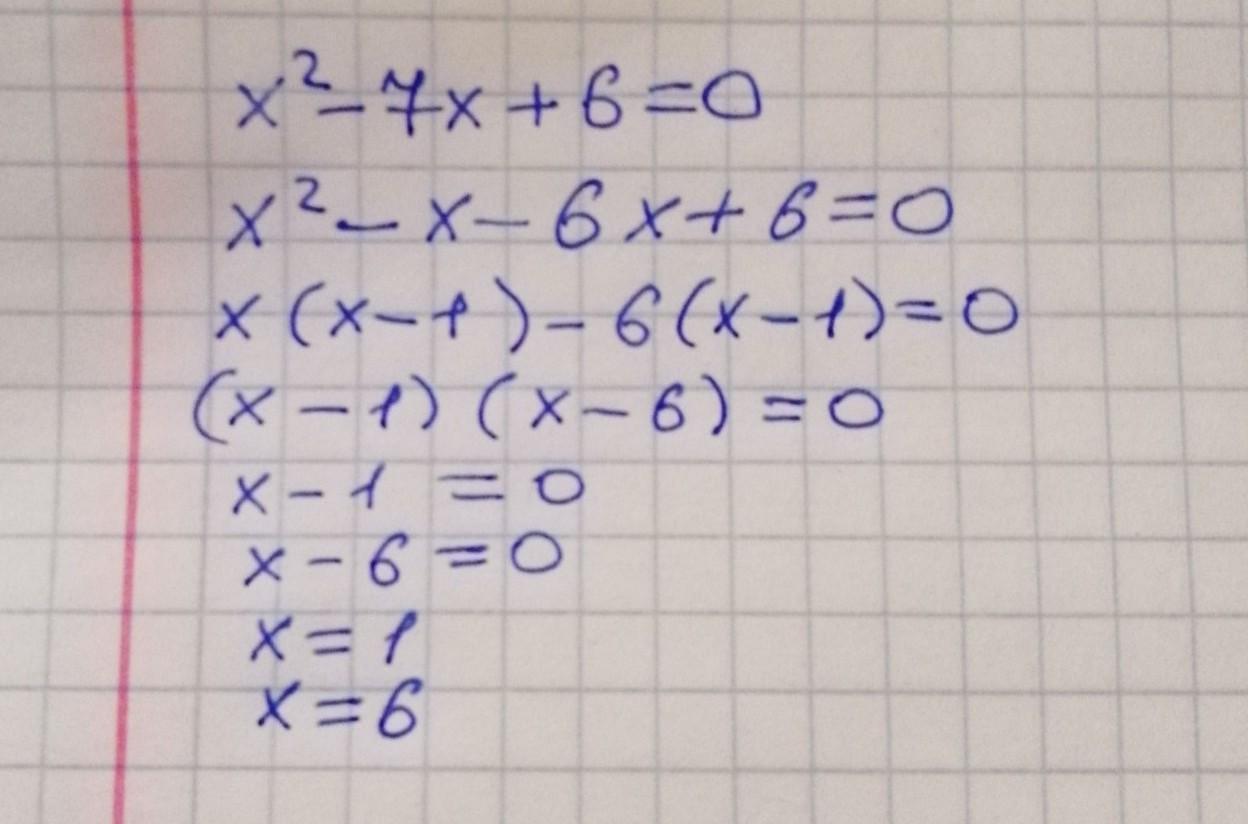 x² - 7x + 6 = 0
x² - x - 6x + 6 = 0
x (x - 1) - 6 (x - 1) = 0
(x - 1) (x - 6) = 0
x - 1 = 0
x - 6 = 0
x = 1
x = 6